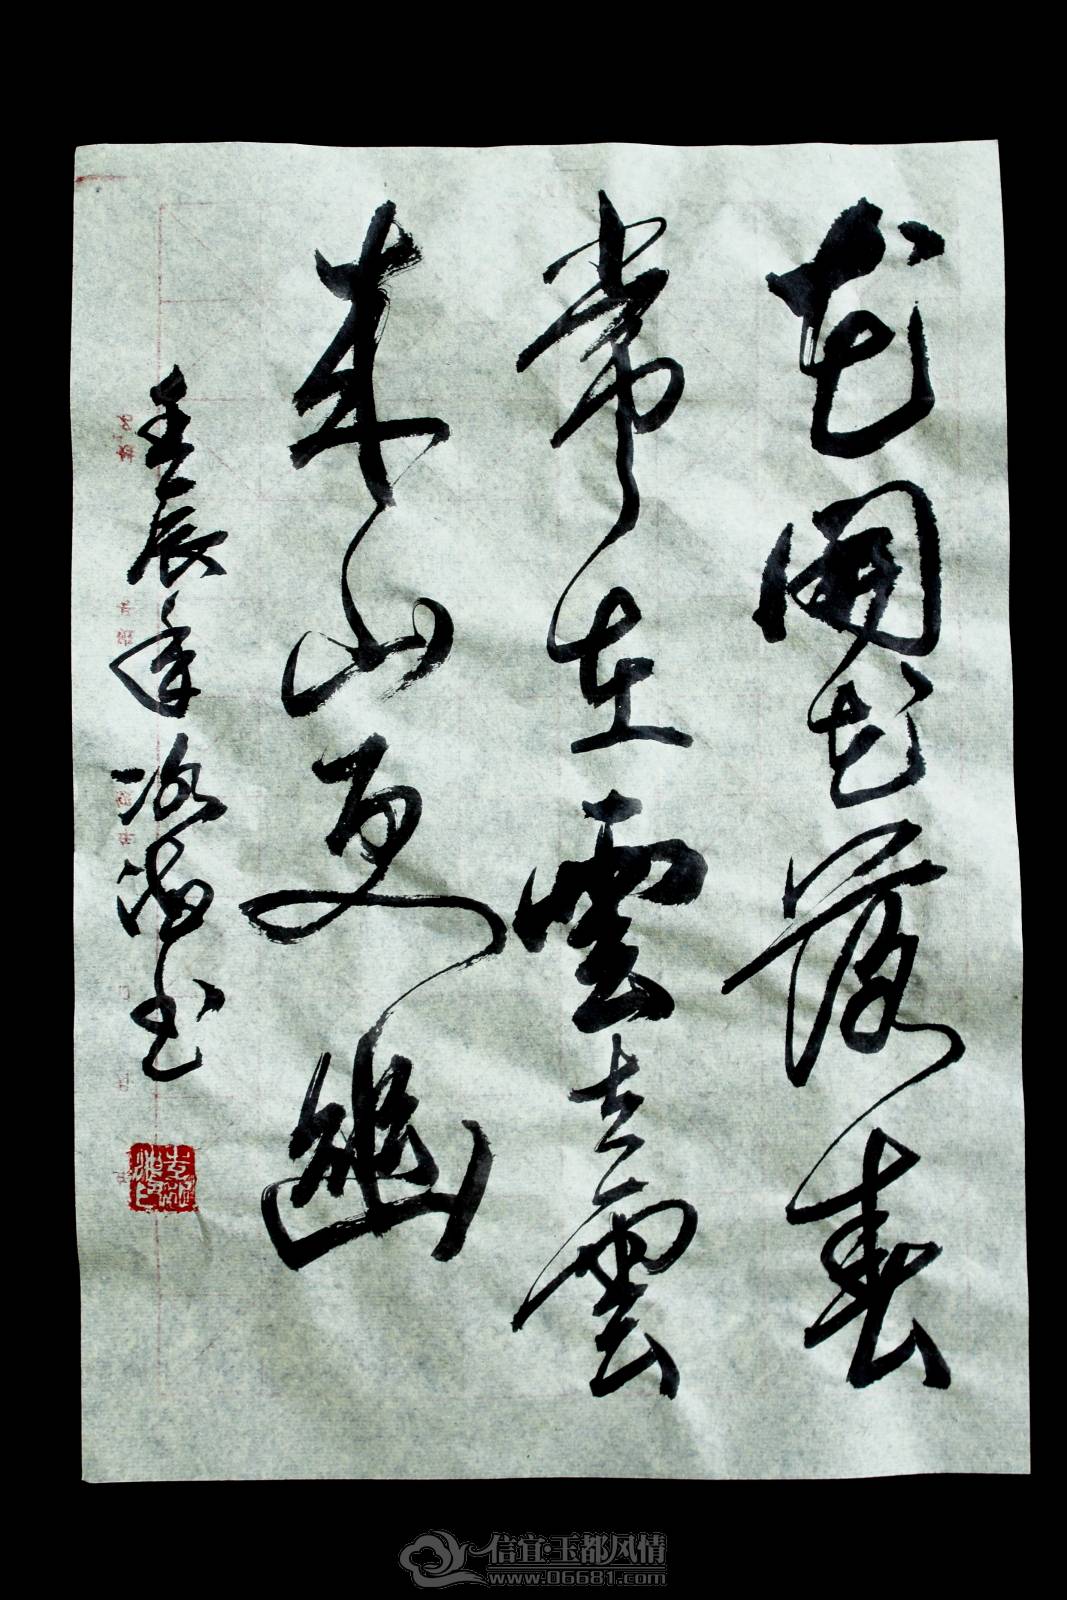 花開花落春
常在雲去雲
来山更幽
壬辰年
海书
信宜·玉都风情
www.06681.com